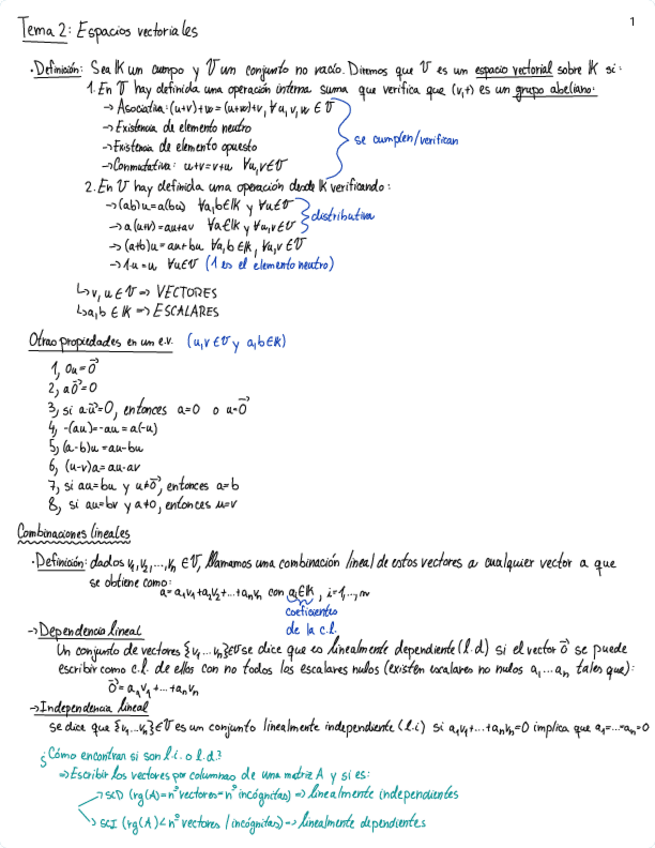 1
Tema 2: Espacios vectoriales
·Definición: Sea K un cuerpo y V un conjunto no vacío. Diremos que V es un espacio vectorial sobre K si:
1. En V hay definida una operación interna suma que verifica que (v,+) es un grupo abeliano:
→ Asociativa: (u+v)+w = (u+w)+v, ∀u,v,w ∈ V
→ Existencia de elemento neutro
→ Existencia de elemento opuesto
→ Conmutativa: u+v=v+u ∀u,v∈V
se cumplen/verifican
2. En V hay definida una operación desde K verificando:
→ (ab)u=a(bu) ∀a,b∈K y ∀u∈V
→ a(u+v)=au+av ∀a∈K y ∀u,v∈V
distributiva
→ (a+b)u=au+bu ∀a,b∈K, ∀u,v∈V
→ 1·u=u ∀u∈V (1 es el elemento neutro)
↳ v,u∈V => VECTORES
↳ a,b∈K => ESCALARES
Otras propiedades en un e.v. (u,v∈V y a,b∈K)
1, 0u=0⃗
2, a0⃗=0
3, si a·u⃗=0, entonces a=0 o u=0⃗
4, -(au)=-au=a(-u)
5, (a-b)u=au-bu
6, (u-v)a=au-av
7, si au=bu y u≠0⃗, entonces a=b
8, si au=bv y a≠0, entonces u=v
Combinaciones lineales
·Definición: dados v₁,v₂,...,vₙ ∈V, llamamos una combinación lineal de estos vectores a cualquier vector a que
se obtiene como:
a=a₁v₁+a₂v₂+...+aₙvₙ con aᵢ∈K, i=1,...,n
coeficientes
de la c.l.
→ Dependencia lineal
Un conjunto de vectores {v₁...vₙ}∈V se dice que es linealmente dependiente (l.d) si el vector 0⃗ se puede
escribir como c.l. de ellos con no todos los escalares nulos (existen escalares no nulos a₁...aₙ tales que):
0⃗=a₁v₁+...+aₙvₙ
→ Independencia lineal
se dice que {v₁...vₙ}∈V es un conjunto linealmente independiente (l.i) si a₁v₁+...+aₙvₙ=0 implica que a₁=...=aₙ=0
¿Cómo encontrar si son l.i. o l.d.?
=> Escribir los vectores por columnas de una matriz A y si es:
→ SCD (rg(A)=nº vectores=nº incógnitas) => linealmente independientes
→ SCI (rg(A)<nº vectores/incógnitas) => linealmente dependientes